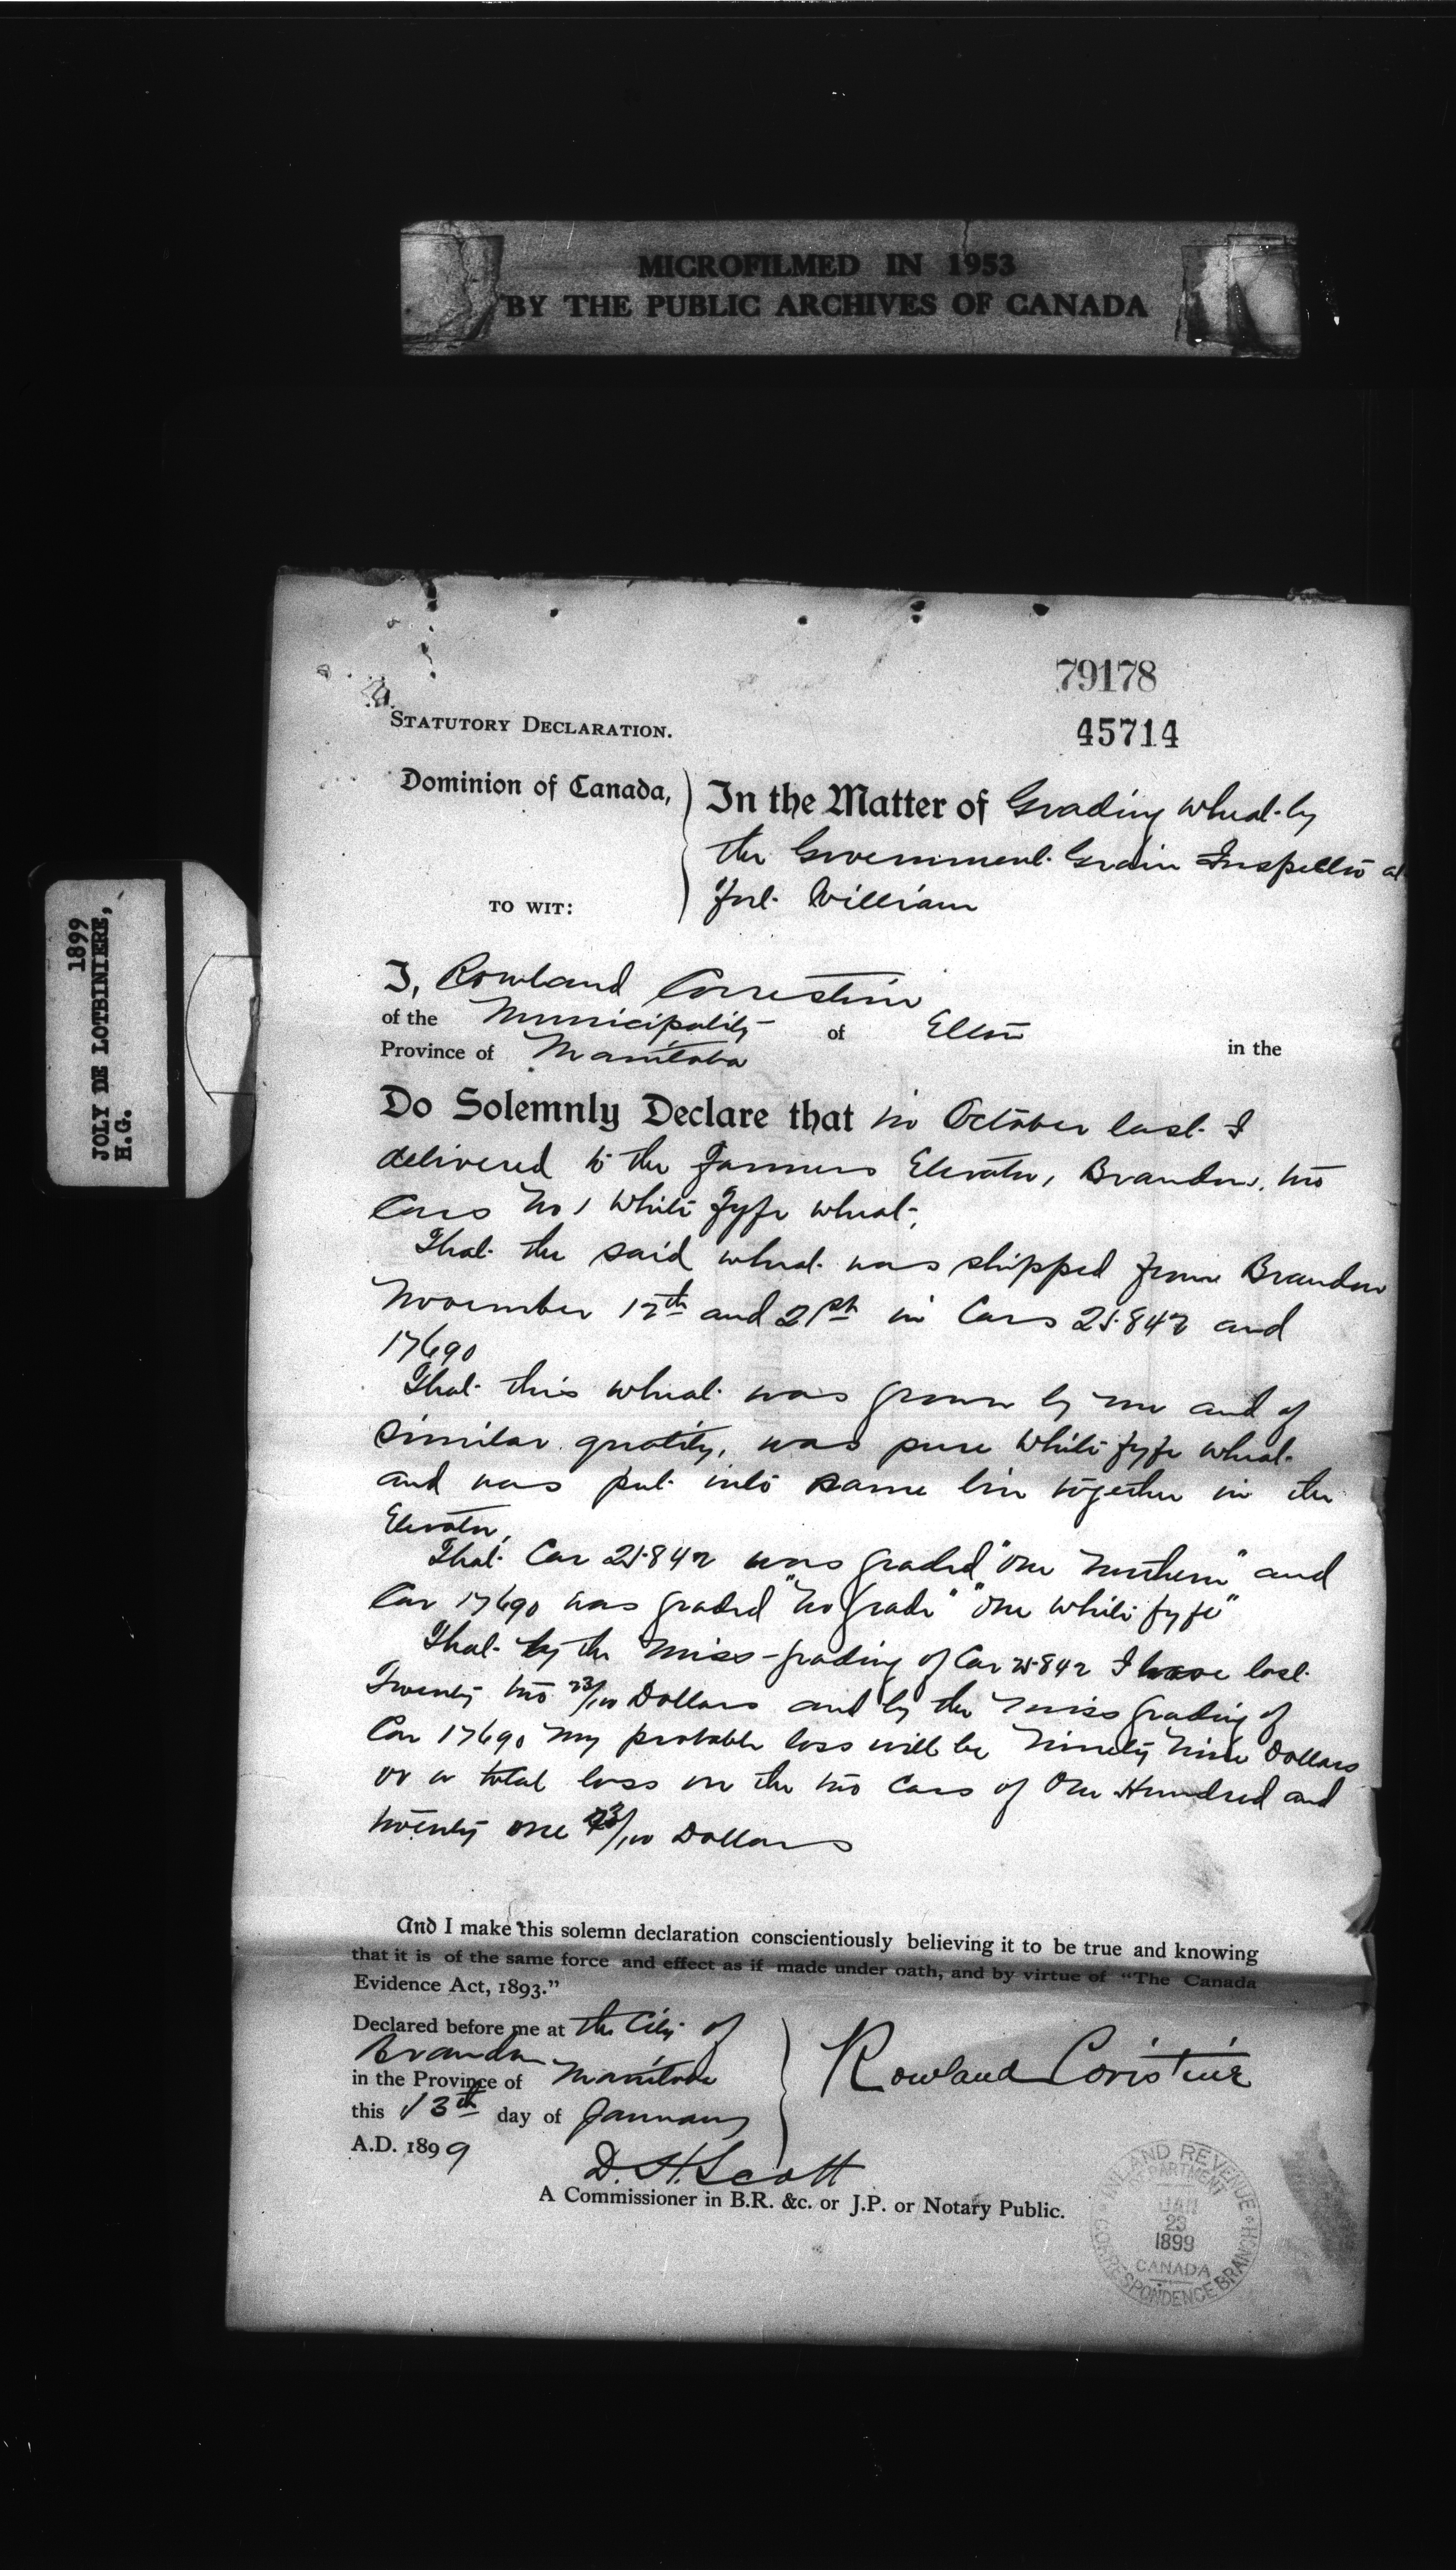 MICROFILMED IN 1953
BY THE PUBLIC ARCHIVES OF CANADA
1899
JOLY DE LOTBINIERE,
H.G.
79178
45714
STATUTORY DECLARATION.
Dominion of Canada,
TO WIT:
In the Matter of Grading wheat by
the Government Grain Inspector at
Fort William
I, Rowland Correstine
of the Municipality of Elton in the
Province of Manitoba
Do Solemnly Declare that in October last I
delivered to the Farmers Elevator, Brandon, two
Cars No 1 White Fyfe wheat,
That the said wheat was shipped from Brandon
November 12th and 21st in Cars 25842 and
17690
That this wheat was grown by me and of
similar quality, was pure White fyfe wheat
and was put into same bin together in the
Elevator,
That Car 25842 was graded "one Northern" and
Car 17690 was graded "No Grade" "one white fyfe"
That by the miss-grading of Car 25842 I have lost
Twenty two 23/100 Dollars and by the miss grading of
Car 17690 my probable loss will be Ninety Nine Dollars
or a total loss on the two Cars of One Hundred and
twenty one 23/100 Dollars
And I make this solemn declaration conscientiously believing it to be true and knowing
that it is of the same force and effect as if made under oath, and by virtue of "The Canada
Evidence Act, 1893."
Declared before me at the City of
Brandon
in the Province of Manitoba
this 13th day of January
A.D. 1899
Rowland Coristine
D. H. Scott
A Commissioner in B.R. &c. or J.P. or Notary Public.
INLAND REVENUE
DEPARTMENT
JAN
23
1899
CANADA
CORRESPONDENCE BRANCH